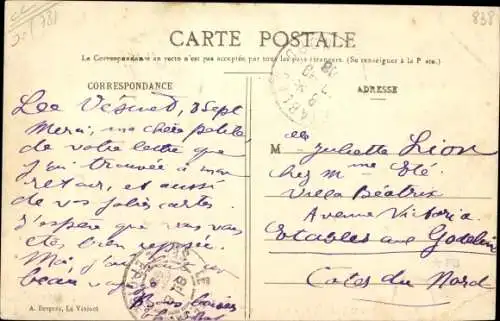 838
CARTE POSTALE
La Correspondance au recto n'est pas acceptée par tous les pays étrangers. (Se renseigner à la Poste).
CORRESPONDANCE
ADRESSE
Le Vésinet, 3 Sept
Merci, ma chère petite
de votre lettre que
j'ai trouvée à mon
retour, et aussi
de vos jolies cartes.
J'espère que vous vous
êtes bien reposée.
Moi, j'ai
beau
Bons baisers
A. Bergeret, Le Vésinet
Melle Juliette Lion
chez Mme Eté
Villa Béatrix
Avenue Victoria
Etables
Côtes du Nord